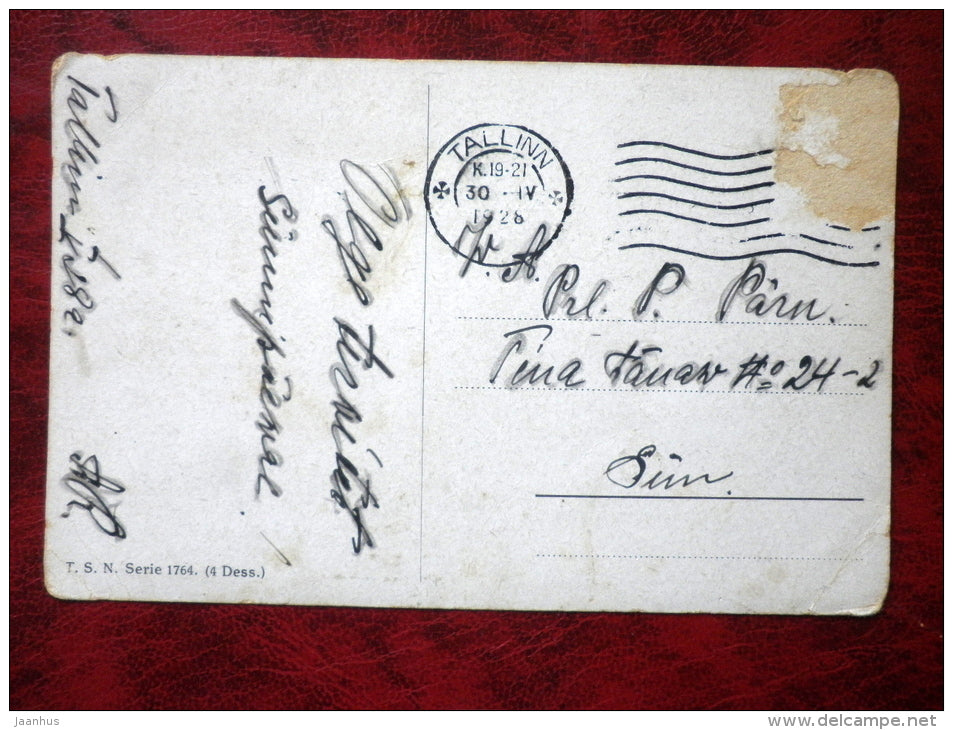 Olge tervitet
Sünnipäeval
T. S. N. Serie 1764. (4 Dess.)
TALLINN
K. 19-21
30 - IV
1928
Prl. P. Pärn.
Tina tänav No 24-2
Siin.
Jaanhus
www.delcampe.net